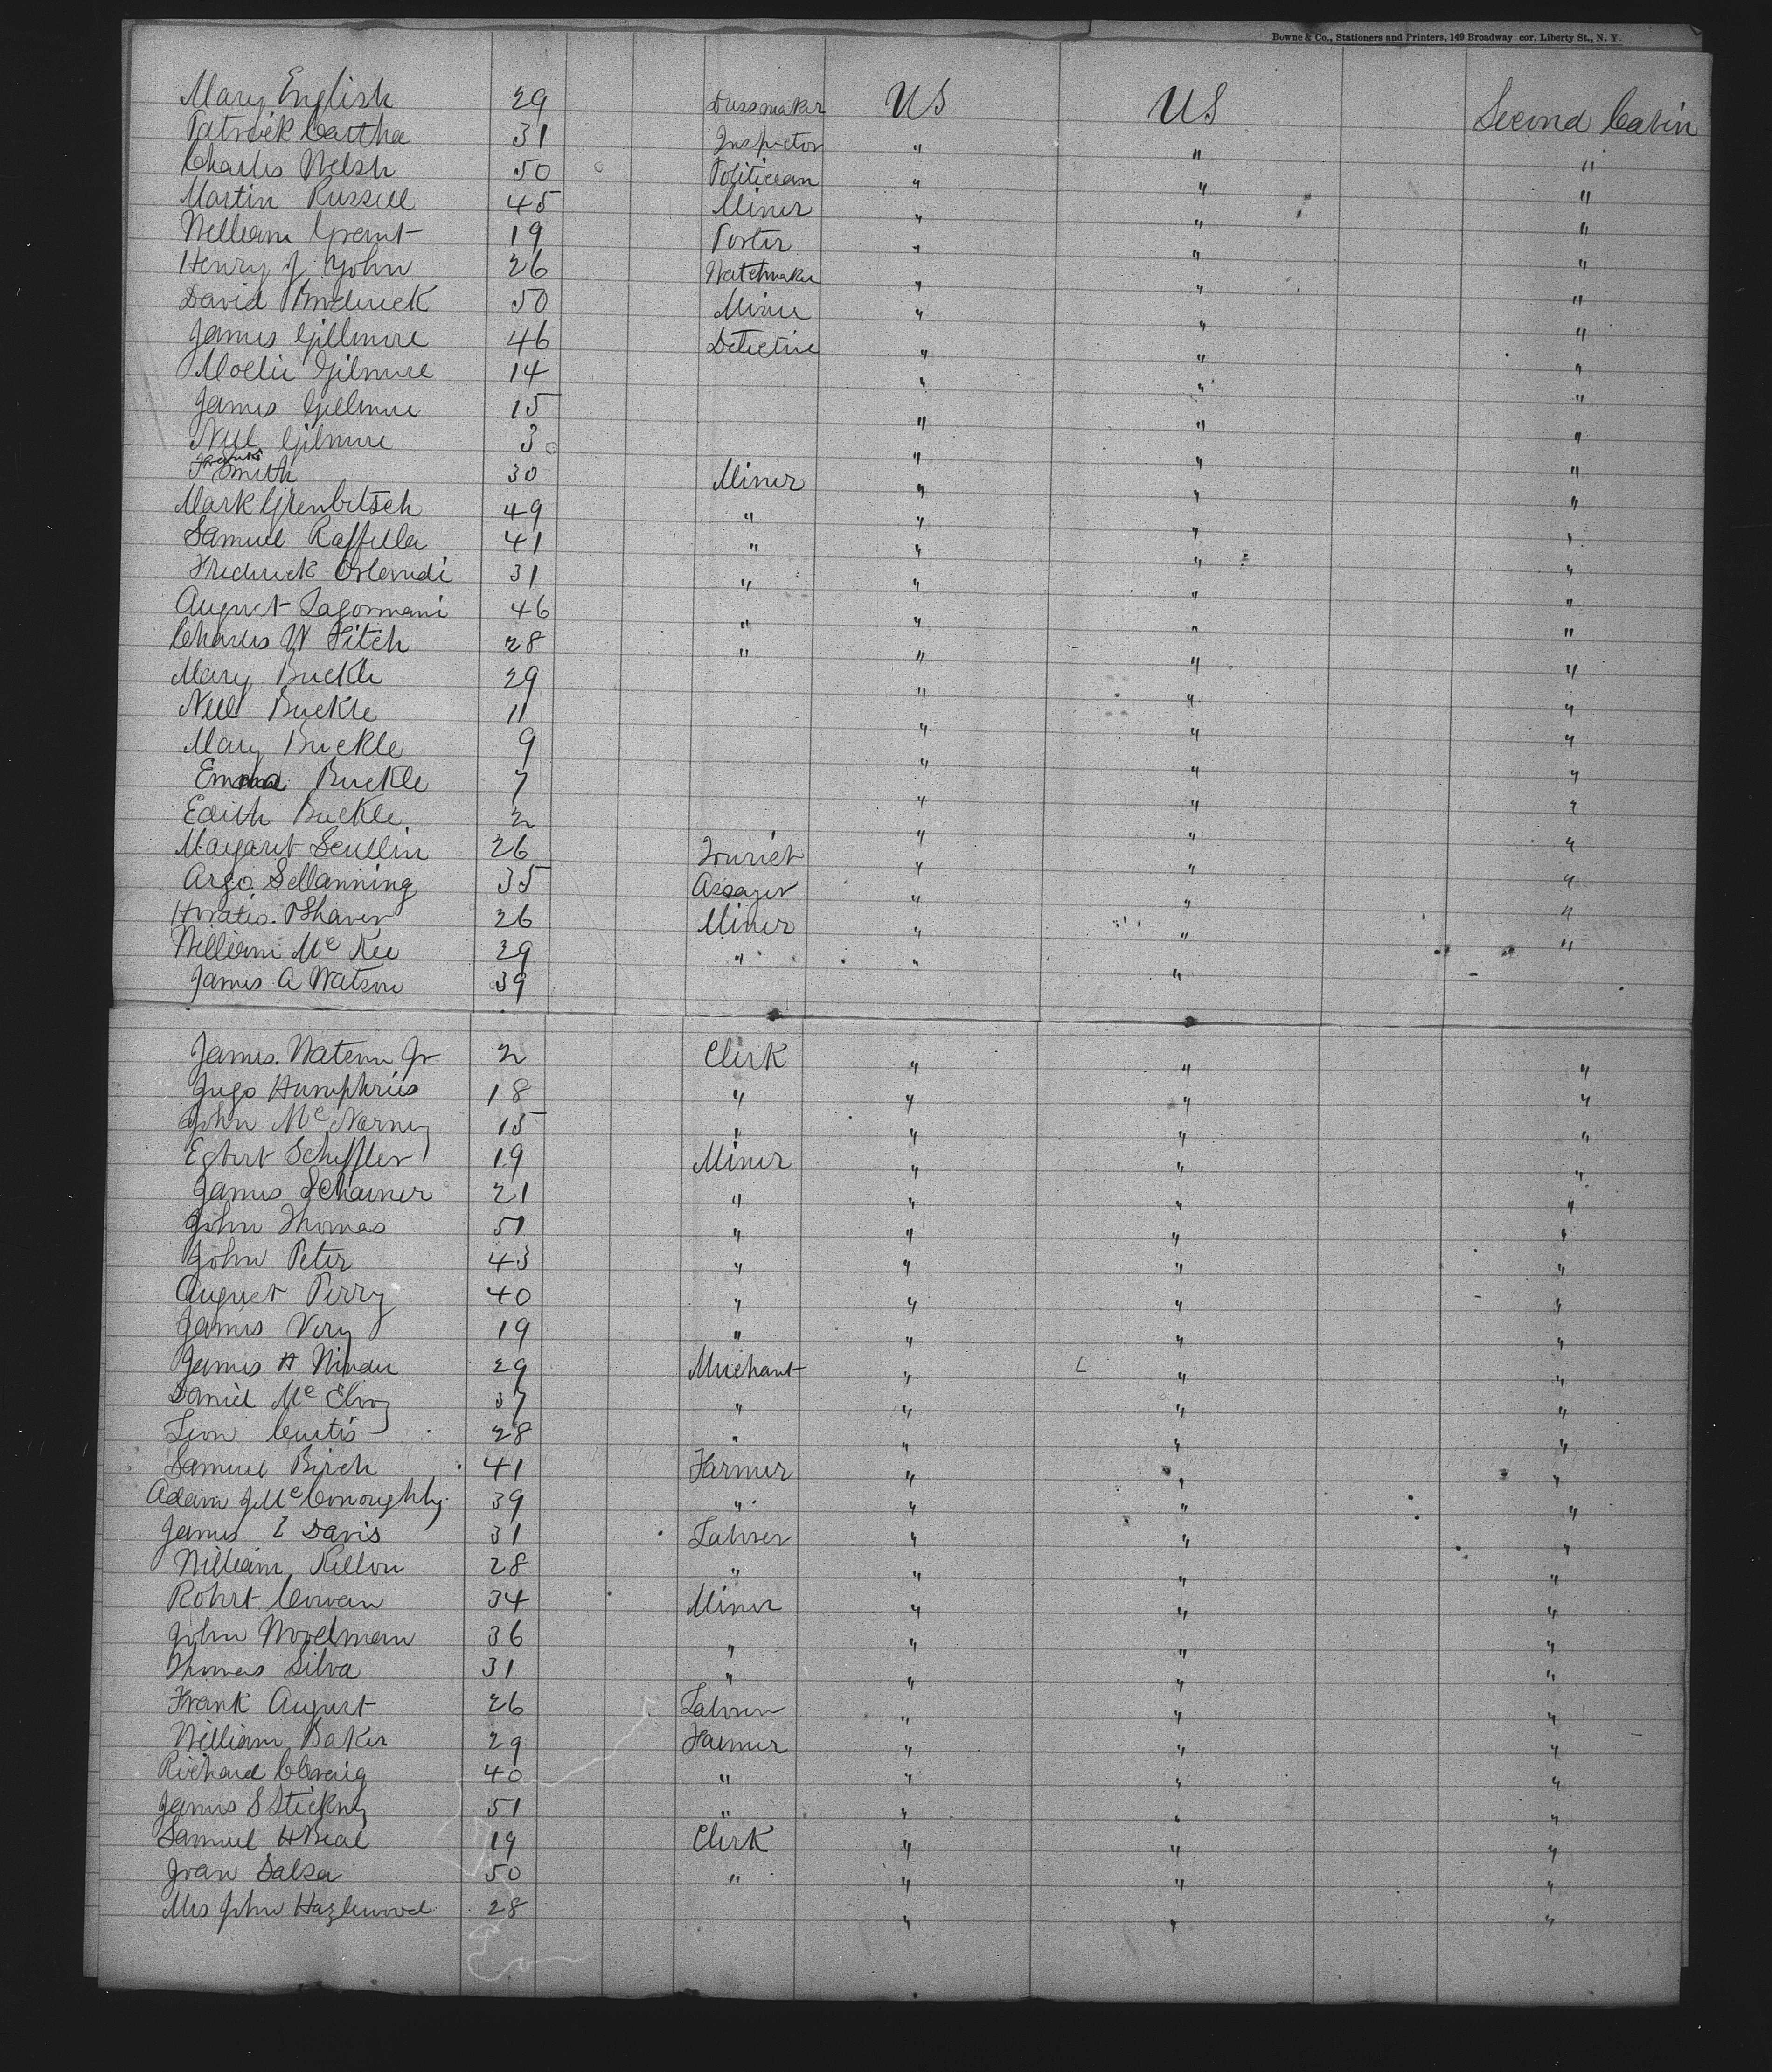 Bowne & Co., Stationers and Printers, 149 Broadway cor. Liberty St., N. Y.
Mary English 29 Dressmaker US US Second Cabin
Patrick Cartha 31 Inspector " " "
Charles Welsh 50 Politician " " "
Martin Russell 45 Miner " " "
William Grant 19 Porter " " "
Henry J. John 26 Watchmaker " " "
David Broderick 50 Miner " " "
James Gillmore 46 Detective " " "
Mollie Gilmore 14 " " "
James Gillmore 15 " " "
Nell Gilmore 3 " " "
Frank Smith 30 Miner " " "
Mark Grenbetsch 49 " " " "
Samuel Raffella 41 " " " "
Fredrick Orlandi 31 " " " "
August Lagormani 46 " " " "
Charles W Fitch 28 " " " "
Mary Buckle 29 " " "
Nell Buckle 11 " " "
Mary Buckle 9 " " "
Emma Buckle 7 " " "
Edith Buckle 2 " " "
Margaret Scullin 26 Tourist " " "
Argo 35 Assayer " " "
Horatio. Shaver 26 Miner " " "
William Mc Kee 29 " " " "
James A Watson 39 "
James. Watson Jr 2 Clerk " " "
Humphries 18 " " " "
John Mc Nerney 15 " " " "
Egbert Scheffler 19 Miner " " "
James 21 " " " "
John Thomas 51 " " " "
John Peter 43 " " " "
August Perry 40 " " " "
James Very 19 " " " "
James H 29 Merchant " " "
Daniel Mc Elroy 37 " " " "
Leon Curtis 28 " " " "
Samuel Birch 41 Farmer " " "
Adam J Mc Conoughhy 39 " " " "
James E Davis 31 Laborer " " "
William Kellon 28 " " " "
Robrt Cowan 34 Miner " " "
John Woodman 36 " " " "
Thomas Silva 31 " " " "
Frank August 26 Laborer " " "
William Baker 29 Farmer " " "
Richard 40 " " " "
James S Stickney 51 " " " "
Samuel H Beal 19 Clerk " " "
Salsa 50 " " " "
Mrs John Hazlewood 28 " " "